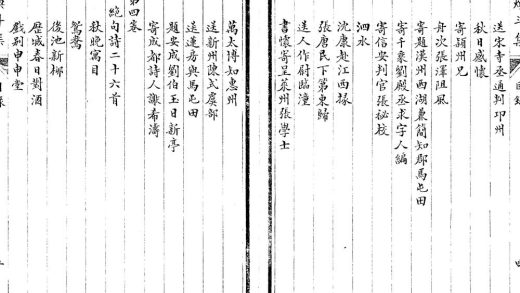 送宋寺丞通判邛州
秋日感懷
寄潁州兄
舟次張澤阻風
寄題漢州西湖兼簡知郡馬屯田
寄千乘劉殿丞求字人編
寄信安判官張秘校
泗水
沈康赴江西掾
張唐民下第東歸
送人作尉臨潼
書懷寄呈萊州張學士
萬太博知惠州
送新州陳式虞部
送蓮房與馬屯田
題安成劉伯玉日新亭
寄成都詩人謝希濤
第四卷
絕句詩二十六首
秋晚寓目
鴛鴦
後池新柳
歷城春日對酒
戲別申申堂